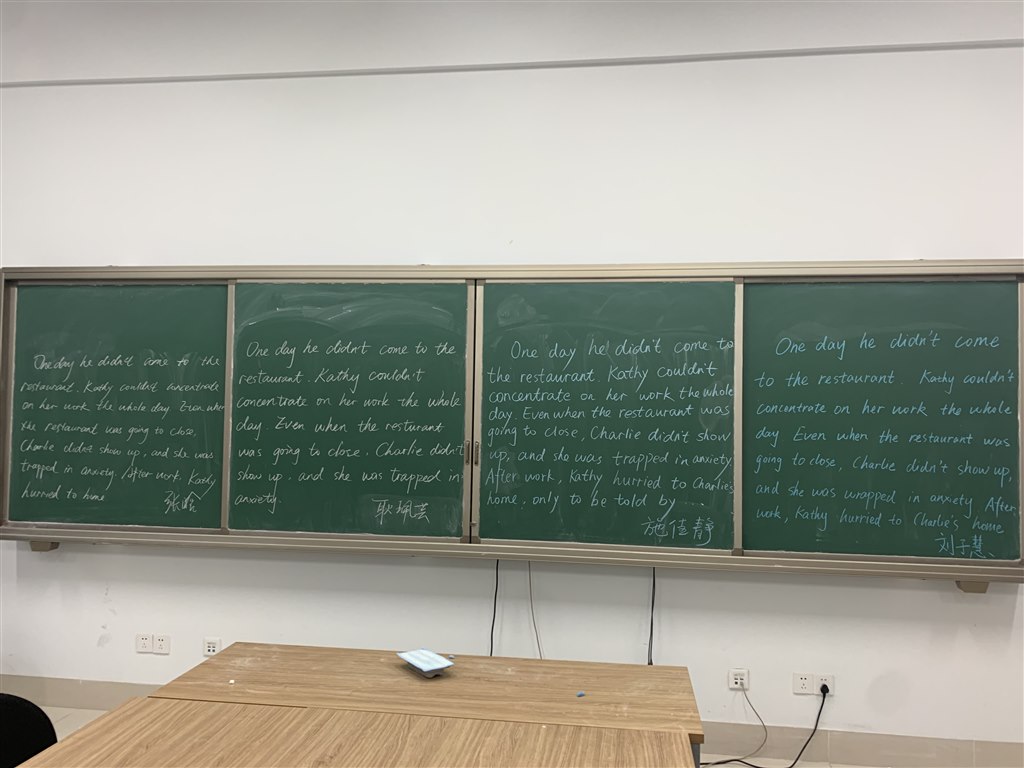 One day he didn't come to the
restaurant. Kathy couldn't concentrate
on her work the whole day. Even when
the restaurant was going to close,
Charlie didn't show up, and she was
trapped in anxiety. After work, Kathy
hurried to home
One day he didn't come to the
restaurant. Kathy couldn't
concentrate on her work the whole
day. Even when the resturant
was going to close. Charlie didn't
show up, and she was trapped in
anxiety.
耿珮芸
One day he didn't come to
the restaurant. Kathy couldn't
concentrate on her work the whole
day. Even when the restaurant was
going to close, Charlie didn't show
up, and she was trapped in anxiety.
After work, Kathy hurried to Charlie's
home, only to be told by ...
施佳静
One day he didn't come
to the restaurant. Kathy couldn't
concentrate on her work the whole
day. Even when the restaurant was
going to close, Charlie didn't show up,
and she was wrapped in anxiety. After
work, Kathy hurried to Charlie's home
刘子慧